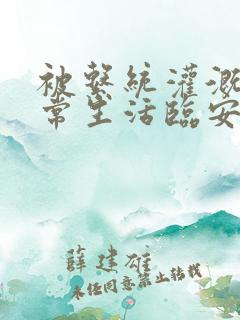 被系統灌溉
常生活臨安
薛建雄
未经同意禁止转载